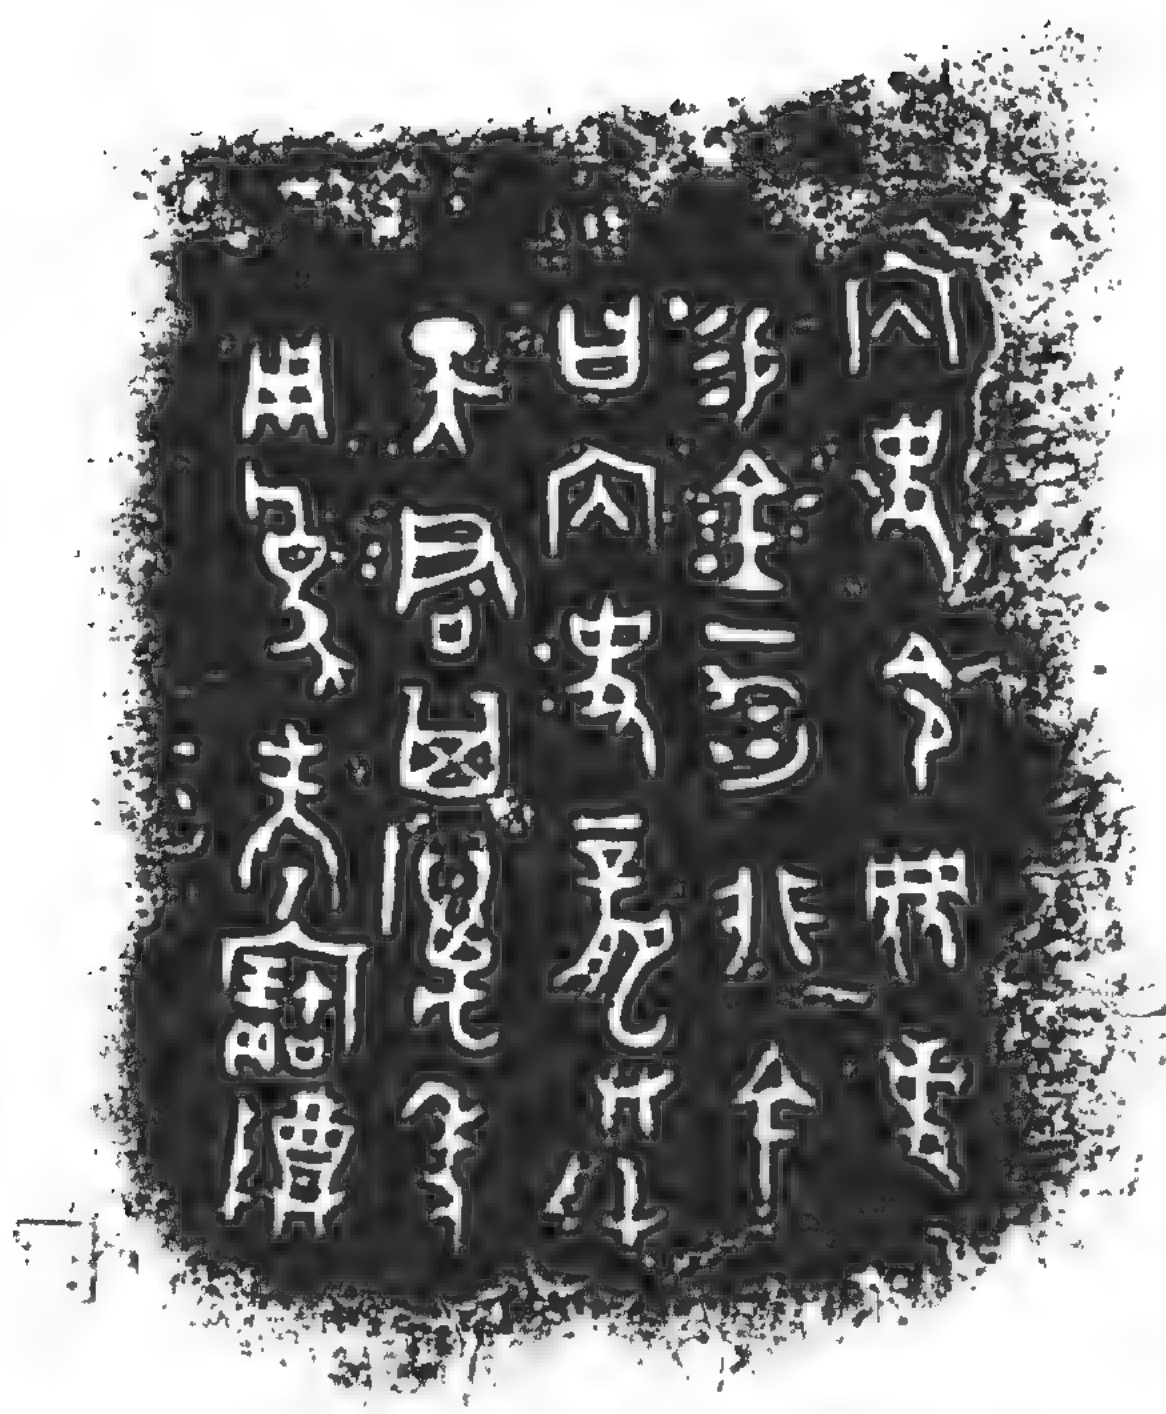 内史令事
易金一勻非余
曰内史龏朕
天君其萬年
用為考寶尊